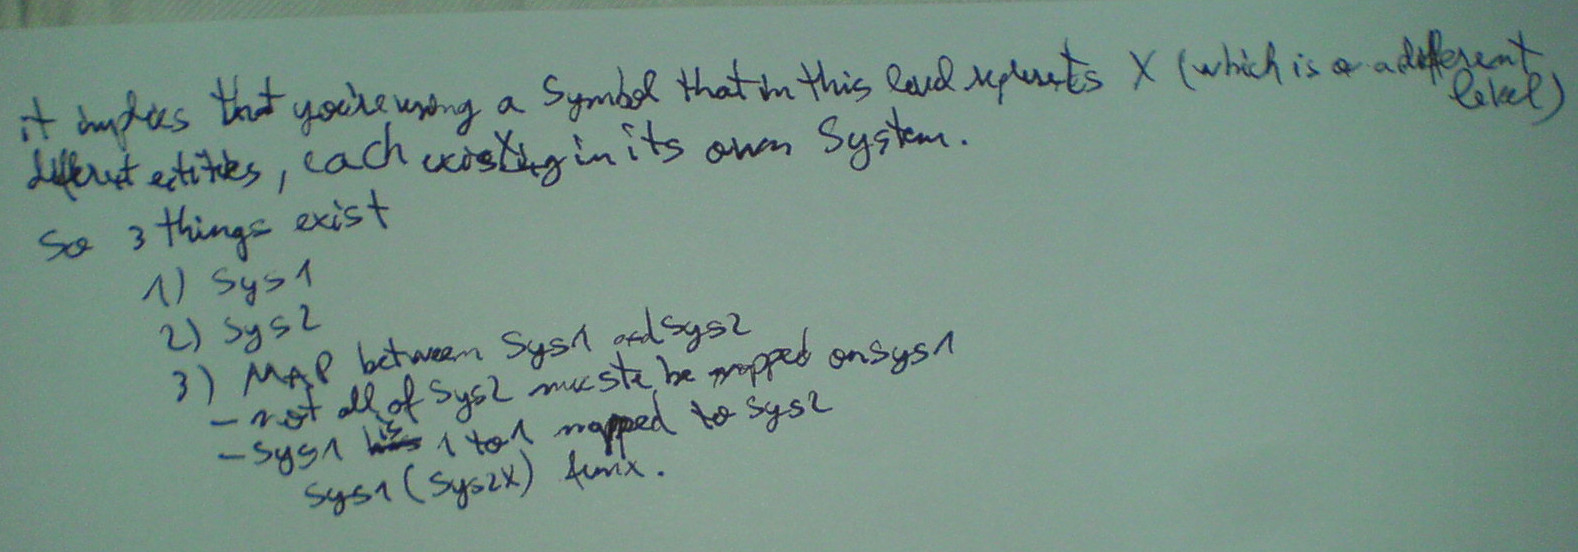 it implies that you're using a Symbol that in this level represents X (which is a different
level)
different entities, each existing in its own System.
So 3 things exist
1) Sys1
2) Sys2
3) MAP between Sys1 and Sys2
- not all of Sys2 must be mapped on Sys1
- Sys1 is 1 to 1 mapped to Sys2
Sys1 (Sys2X)